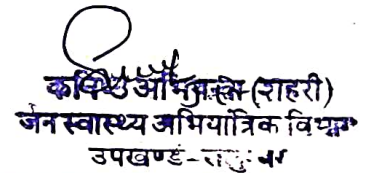 कनिष्ठ अभियन्ता (शहरी)
जन स्वास्थ्य अभियांत्रिक विभाग
उपखण्ड-